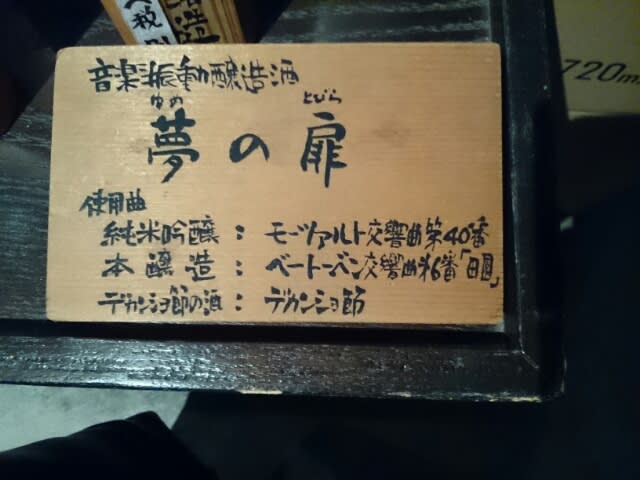 音楽振動醸造酒
ゆめ とびら
夢の扉
使用曲
純米吟醸：モーツァルト交響曲第40番
本醸造：ベートーベン交響曲第6番「田園」
デカンショ節の酒：デカンショ節
720m